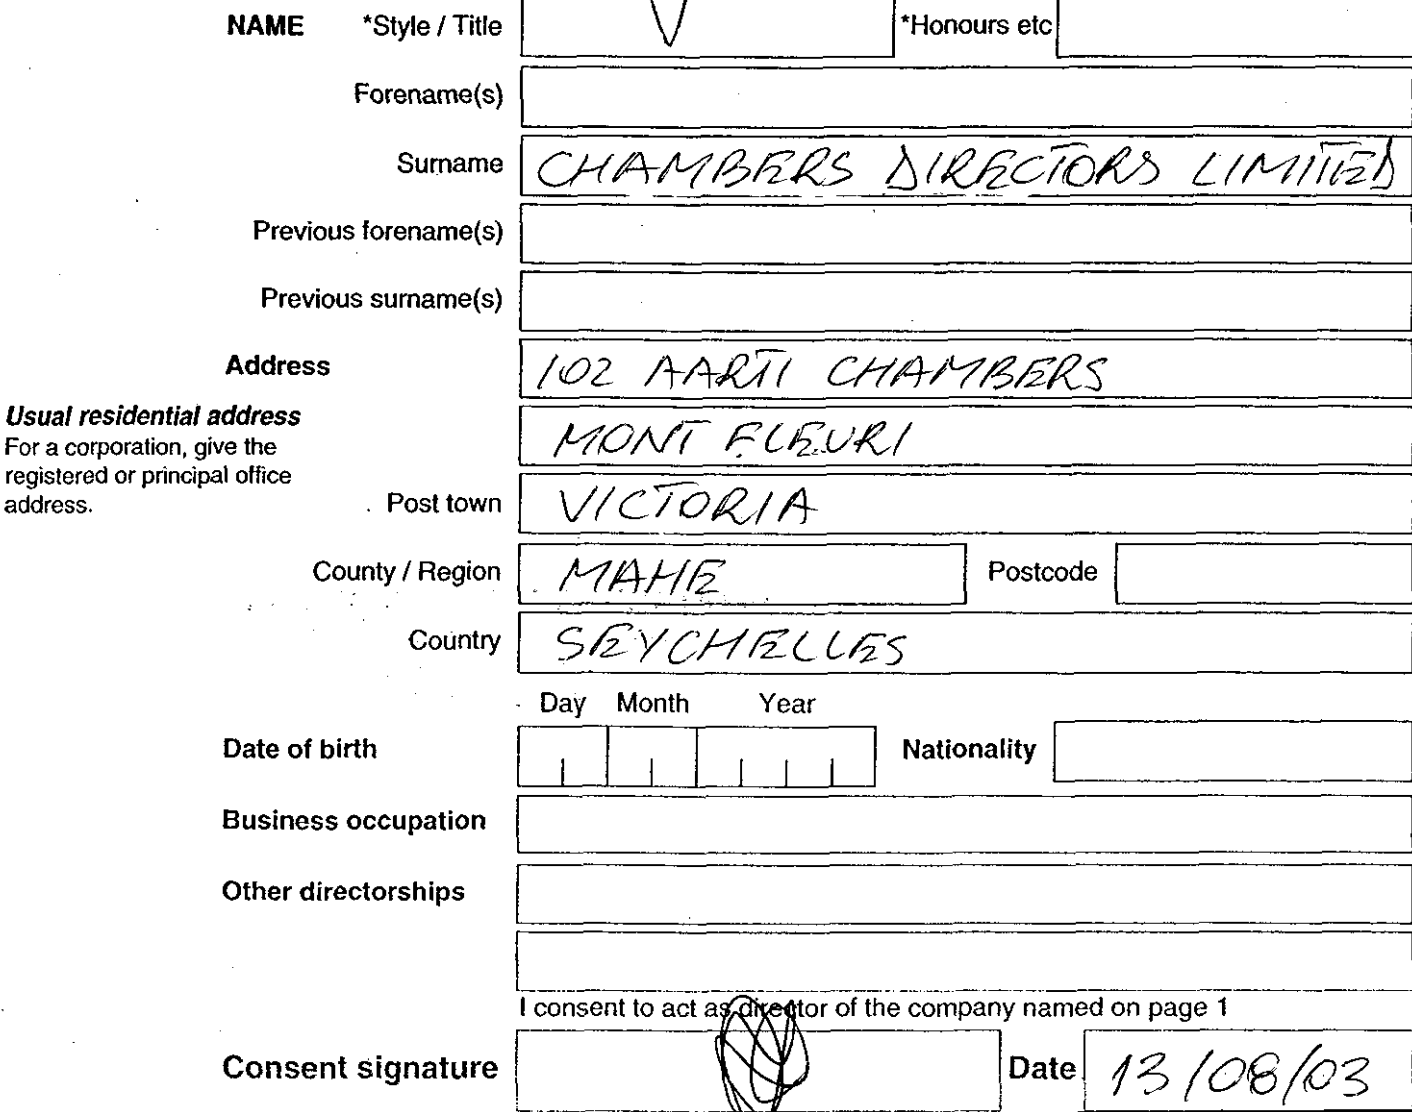 NAME *Style / Title *Honours etc
Forename(s)
Surname CHAMBERS DIRECTORS LIMITED
Previous forename(s)
Previous surname(s)
Address 102 AARTI CHAMBERS
Usual residential address MONT FLEURI
For a corporation, give the
registered or principal office
address. Post town VICTORIA
County / Region MAHE Postcode
Country SEYCHELLES
Day Month Year
Date of birth Nationality
Business occupation
Other directorships
I consent to act as director of the company named on page 1
Consent signature Date 13/08/03